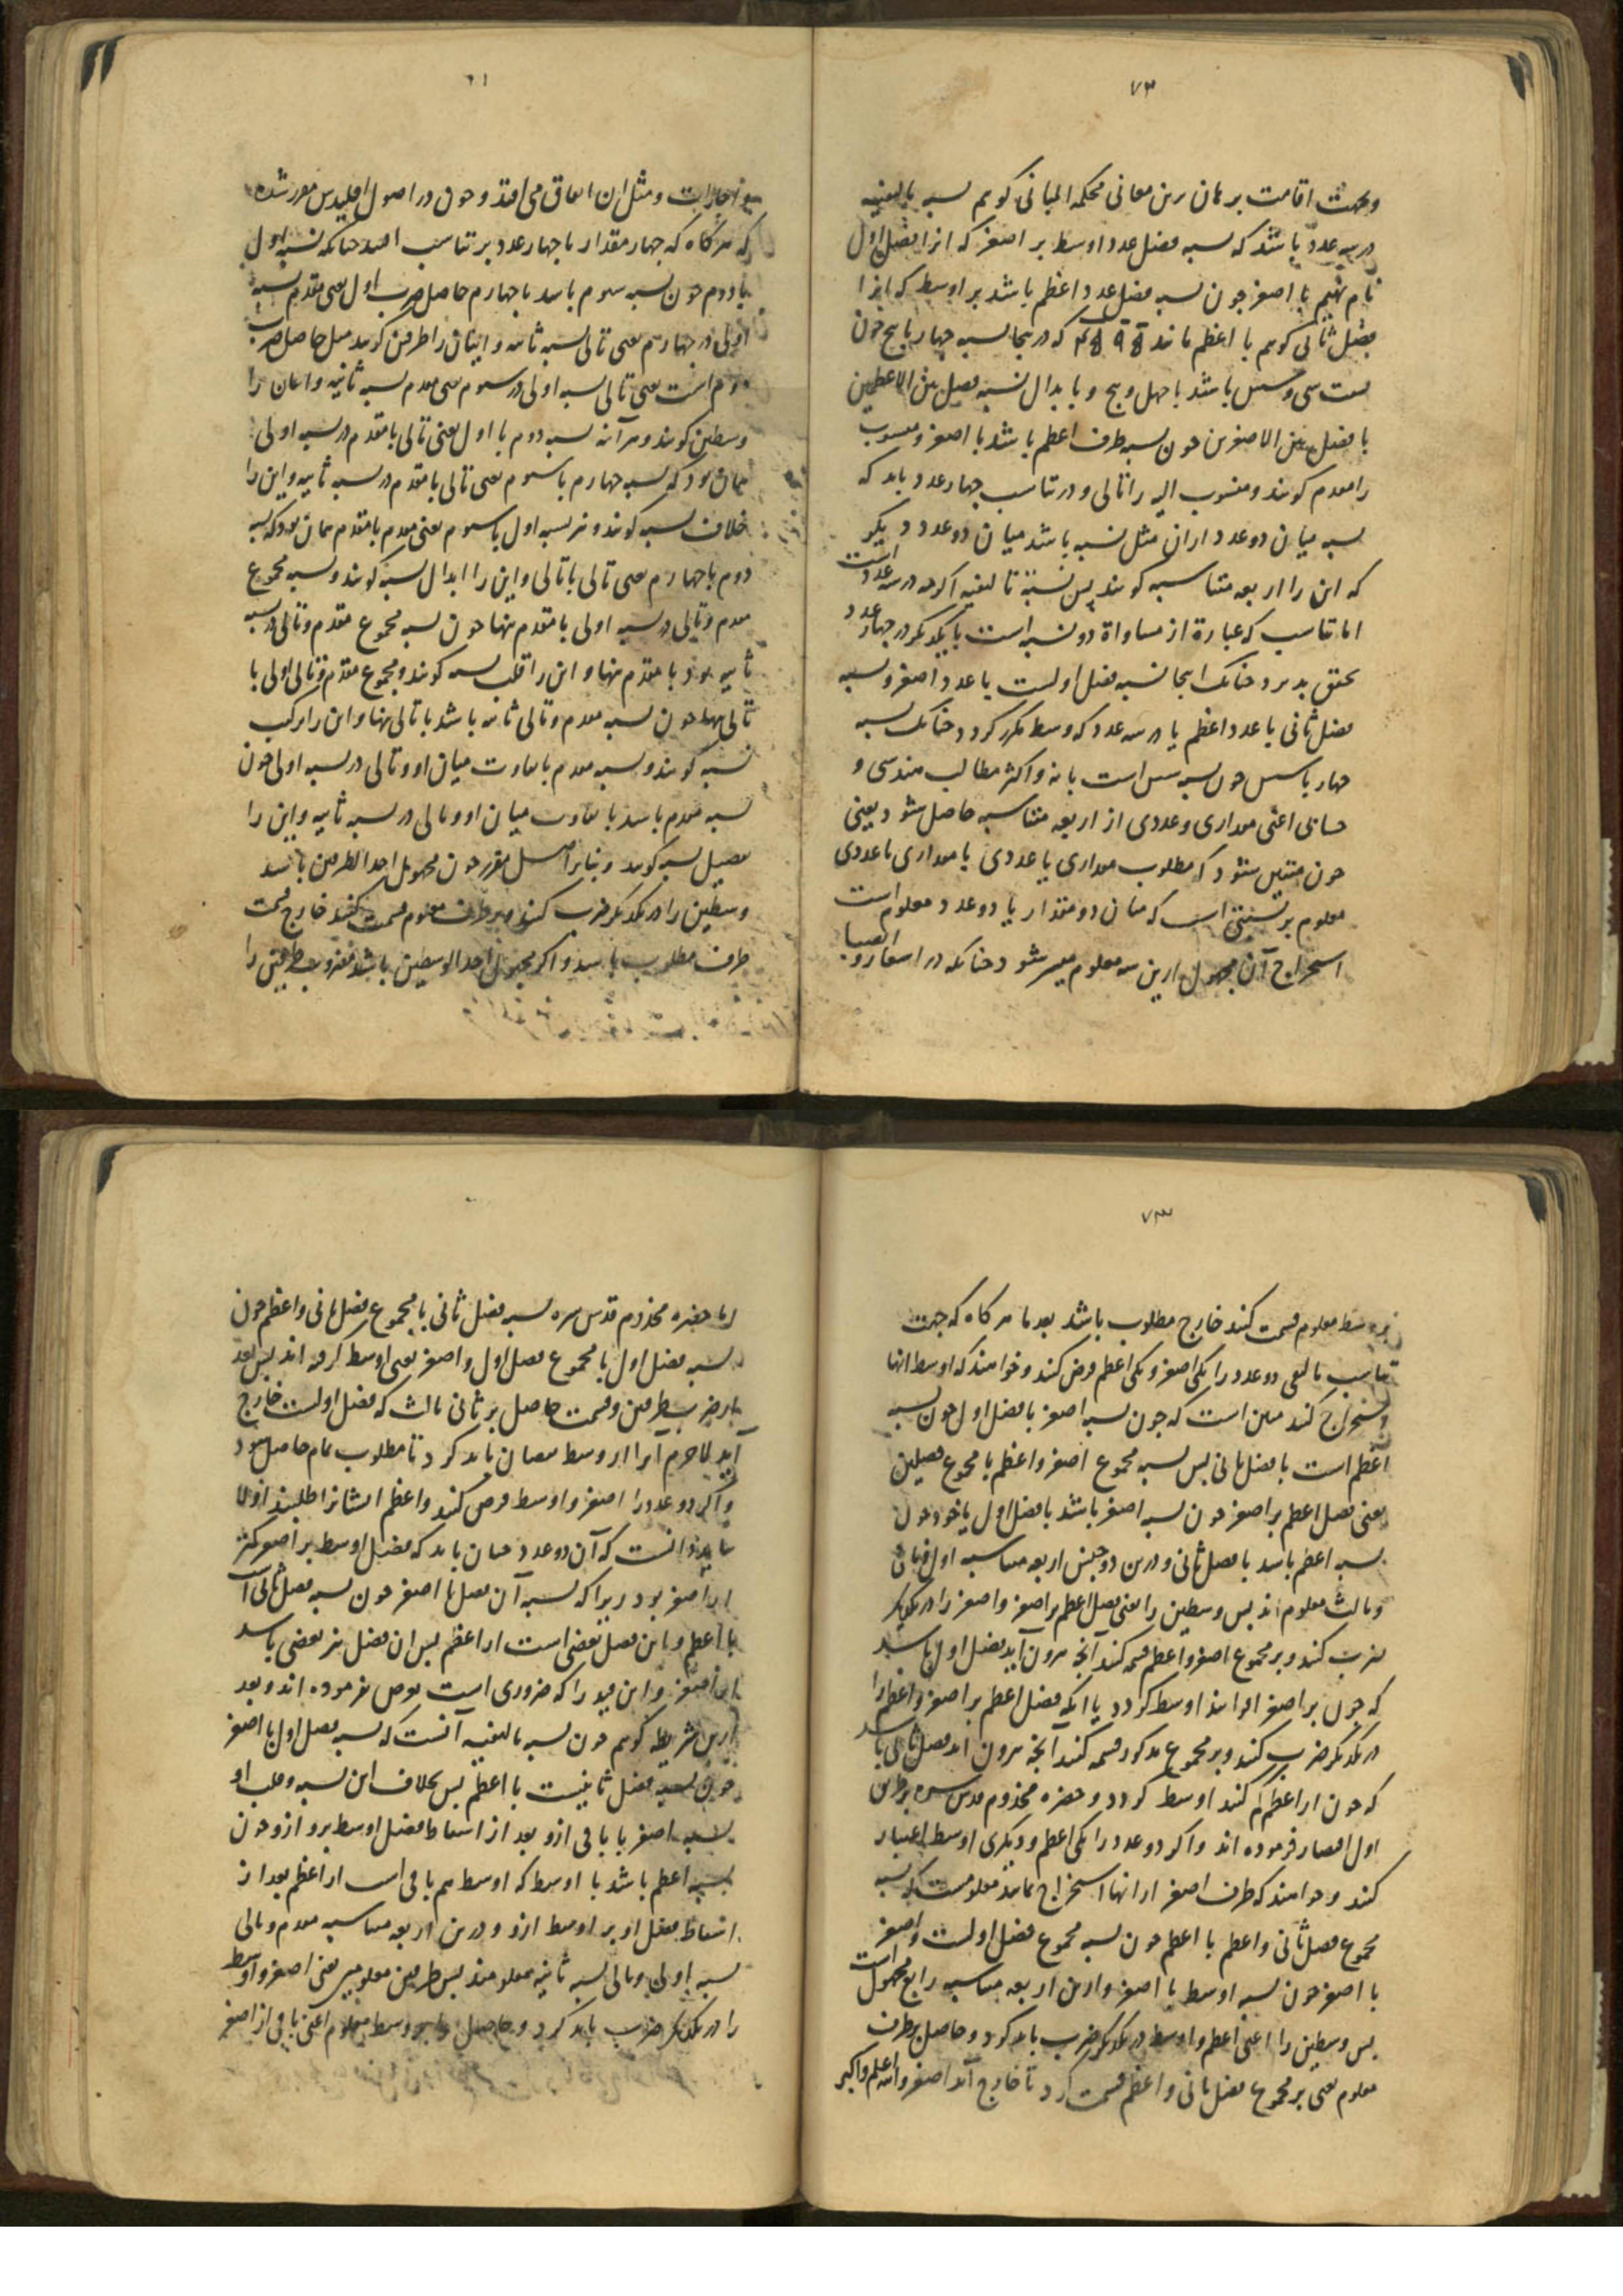 ۷۳
وبجهت اقامت برهان برین معانی محکمه المبانی کوییم نسبه تالیفیه
در سه عدد باشد که نسبه فضل عدد اوسط بر اصغر که انرا فضل اول
نام نهیم با اصغر جون نسبه فضل عدد اعظم باشد بر اوسط که انرا
فضل ثانی کوییم با اعظم مانند که درینجا نسبه چهار با پنج جون
نسبت سی و شش باشد با چهل و پنج و با بدال نسبه فضل بین الاعظمین
با فضل بین الاصغرین جون نسبه طرف اعظم باشد با اصغر و منسوب
را مقدم کویند و منسوب الیه را تالی و در تناسب چهار عدد باید که
نسبه میان دو عدد ازان مثل نسبه باشد میان دو عدد دیگر
که این را اربعه متناسبه کویند پس نسبة تالیفیه اکرچه در سه عدد است
اما تناسب که عبارة از مساواة دو نسبه است با یکدیگر در چهار عدد
تحقق پذیرد چنانک اینجا نسبه فضل اولست با عدد اصغر و نسبه
فضل ثانی با عدد اعظم یا در سه عدد که وسط مکرر کردد چنانک نسبه
چهار با شش جون نسبه شش است با نه و اکثر مطالب هندسی و
حسابی اعنی مقداری و عددی از اربعه متناسبه حاصل شود یعنی
جون متیقن شود که مطلوب مقداری یا عددی با مقداری یا عددی
معلوم بر نسبتی است که میان دو مقدار یا دو عدد معلوم است
استخراج آن مجهول ازین سه معلوم میسر شود چنانکه در اسعار و
اجارات و مثل ان اتفاق می افتد و جون در اصول اقلیدس مقرر شده
که هرکاه که چهار مقدار یا چهار عدد بر تناسب افتد چنانکه نسبه اول
با دوم جون نسبه سوم باشد با چهارم حاصل ضرب اول یعنی مقدم نسبه
اولی در چهارم یعنی تالی نسبه ثانیه و ایشان را طرفین کویند مثل حاصل ضرب
دوم است یعنی تالی نسبه اولی در سوم یعنی مقدم نسبه ثانیه و ایشان را
وسطین کویند و هر آینه نسبه دوم با اول یعنی تالی با مقدم در نسبه اولی
همان بود که نسبه چهارم با سوم یعنی تالی با مقدم در نسبه ثانیه و این را
خلاف نسبه کویند و نیز نسبه اول با سوم یعنی مقدم با مقدم همان بود که نسبه
دوم با چهارم یعنی تالی با تالی و این را ابدال نسبه کویند و نسبه مجموع
مقدم و تالی در نسبه اولی با مقدم تنها جون نسبه مجموع مقدم و تالی در نسبه
ثانیه بود با مقدم تنها و این را قلب نسبه کویند و مجموع مقدم و تالی اولی با
تالی تنها جون نسبه مقدم و تالی ثانیه باشد با تالی تنها و این را ترکیب
نسبه کویند و نسبه مقدم با تفاوت میان او و تالی در نسبه اولی جون
نسبه مقدم باشد با تفاوت میان او و تالی در نسبه ثانیه و این را
تفصیل نسبه کویند و بنابر اصل مقرر جون مجهول احد الطرفین باشد
وسطین را در یکدیگر ضرب کنند و بر طرف معلوم قسمت کنند خارج قسمت
طرف مطلوب باشد و اکر مجهول احد الوسطین باشد مضروب طرفین را
۷۳
بر وسط معلوم قسمت کنند خارج مطلوب باشد بعدما هرکاه که جهت
تناسب تالیفی دو عدد را یکی اصغر و یکی اعظم فرض کنند و خواهند که اوسط انها
استخراج کنند مبین است که جون نسبه اصغر با فضل اول جون نسبه
اعظم است با فضل ثانی پس نسبه مجموع اصغر و اعظم با مجموع فضلین
یعنی فضل اعظم بر اصغر جون نسبه اصغر باشد با فضل اول یا خود جون
نسبه اعظم باشد با فضل ثانی و درین دو جنس اربعه متناسبه اول و ثانی
و ثالث معلوم اند پس وسطین را یعنی فضل اعظم بر اصغر و اصغر را در یکدیگر
ضرب کنند و بر مجموع اصغر و اعظم قسمه کنند آنچه بیرون آید فضل اول باشد
که جون بر اصغر افزایند اوسط کردد یا انکه فضل اعظم بر اصغر و اعظم را
در یکدیگر ضرب کنند و بر مجموع مذکور قسمه کنند آنچه بیرون اید فضل ثانی باشد
که جون از اعظم کم کنند اوسط کردد و حضره مخدوم قدس سره بر طریق
اول اقتصار فرموده اند و اکر دو عدد را یکی اعظم و دیگری اوسط اعتبار
کنند و خواهند که طرف اصغر ازانها استخراج نمایند معلومست که نسبه
مجموع فضل ثانی و اعظم با اعظم جون نسبه مجموع فضل اولست و اصغر
با اصغر جون نسبه اوسط با اصغر و ازین اربعه متناسبه رابع مجهول است
پس وسطین را اعنی اعظم و اوسط در یکدیگر ضرب باید کرد و حاصل بر طرف
معلوم یعنی بر مجموع فضل ثانی و اعظم قسمت کرد تا خارج آید اصغر و الله اعلم و اکبر
اما حضره مخدوم قدس سره نسبه فضل ثانی با مجموع فضل ثانی و اعظم جون
نسبه فضل اول با مجموع فضل اول و اصغر یعنی اوسط کرفته اند پس بعد
از ضرب طرفین و قسمت حاصل بر ثانی ثالث که فضل اولست خارج
آید لاجرم آنرا از اوسط نقصان باید کرد تا مطلوب تمام حاصل شود
و اکر دو عدد را اصغر و اوسط فرض کنند و اعظم ایشانرا طلبند اولا
باید دانست که آن دو عدد چنان باید که فضل اوسط بر اصغر کمتر
از اصغر بود زیرا که نسبه آن فضل با اصغر جون نسبه فضل ثانی است
با اعظم و این فضل بعضی است از اعظم پس ان فضل نیز بعضی باشد
از اصغر و این قید را که ضروری است نفرموده اند و بعد
ازین شریطه کوییم جون نسبه تالیفیه آنست که نسبه فضل اول با اصغر
جون نسبه فضل ثانیست با اعظم پس بخلاف این نسبه و قلب او
نسبه اصغر با باقی ازو بعد از اسقاط فضل اوسط برو ازو جون
نسبه اعظم باشد با اوسط که اوسط هم باقی است از اعظم بعد از
اسقاط فضل او بر اوسط ازو و درین اربعه متناسبه مقدم و تالی
نسبه اولی و تالی نسبه ثانیه معلومند پس طرفین معلومین یعنی اصغر و اوسط
را در یکدیگر ضرب باید کرد و حاصل را بر وسط معلوم اعنی باقی از اصغر